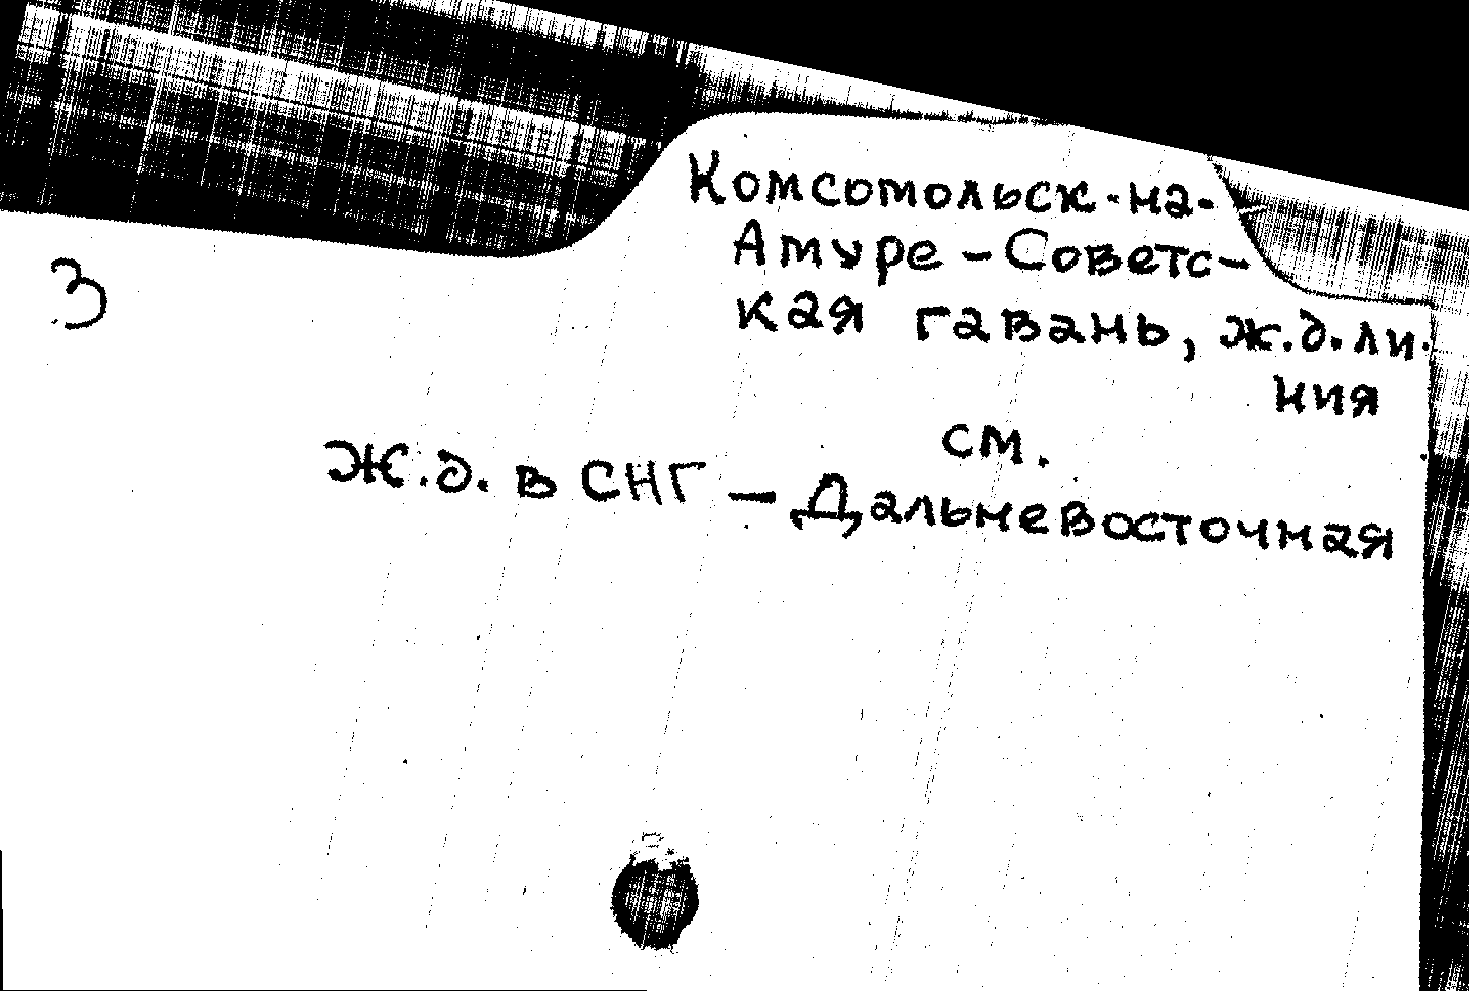 Комсомольск-на-
Амуре - Советс-
кая гавань, ж.д. ли-
ния
см.
Ж.д. в СНГ - Дальневосточная
3